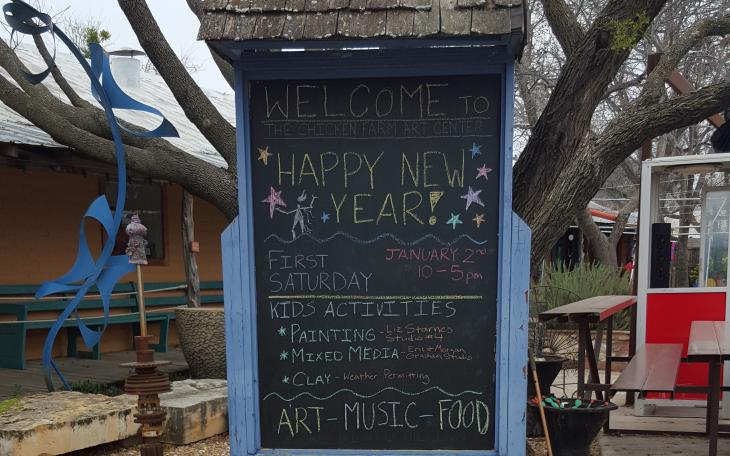 WELCOME TO
THE CHICKEN FARM ART CENTER
HAPPY NEW
YEAR!
FIRST
SATURDAY
JANUARY 2nd
10-5pm
KIDS ACTIVITIES
*PAINTING - Liz Starnes
Studio #4
*MIXED MEDIA - Eric & Morgan
Studio
*CLAY - Weather Permitting
ART-MUSIC-FOOD